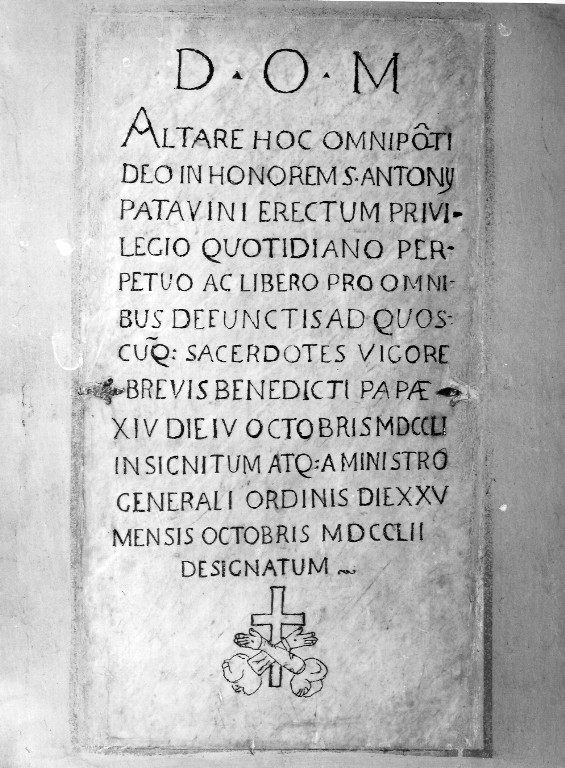 D · O · M
ALTARE HOC OMNIPÔTI
DEO IN HONOREM S·ANTONIJ
PATAVINI ERECTUM PRIVI-
LEGIO QUOTIDIANO PER-
PETUO AC LIBERO PRO OMNI-
BUS DEFUNCTIS AD QUOS-
CUQ̃: SACERDOTES VIGORE
BREVIS BENEDICTI PAPÆ
XIV DIE IV OCTOBRIS MDCCLI
INSIGNITUM ATQ: A MINISTRO
GENERALI ORDINIS DIE XXV
MENSIS OCTOBRIS MDCCLII
DESIGNATUM ~